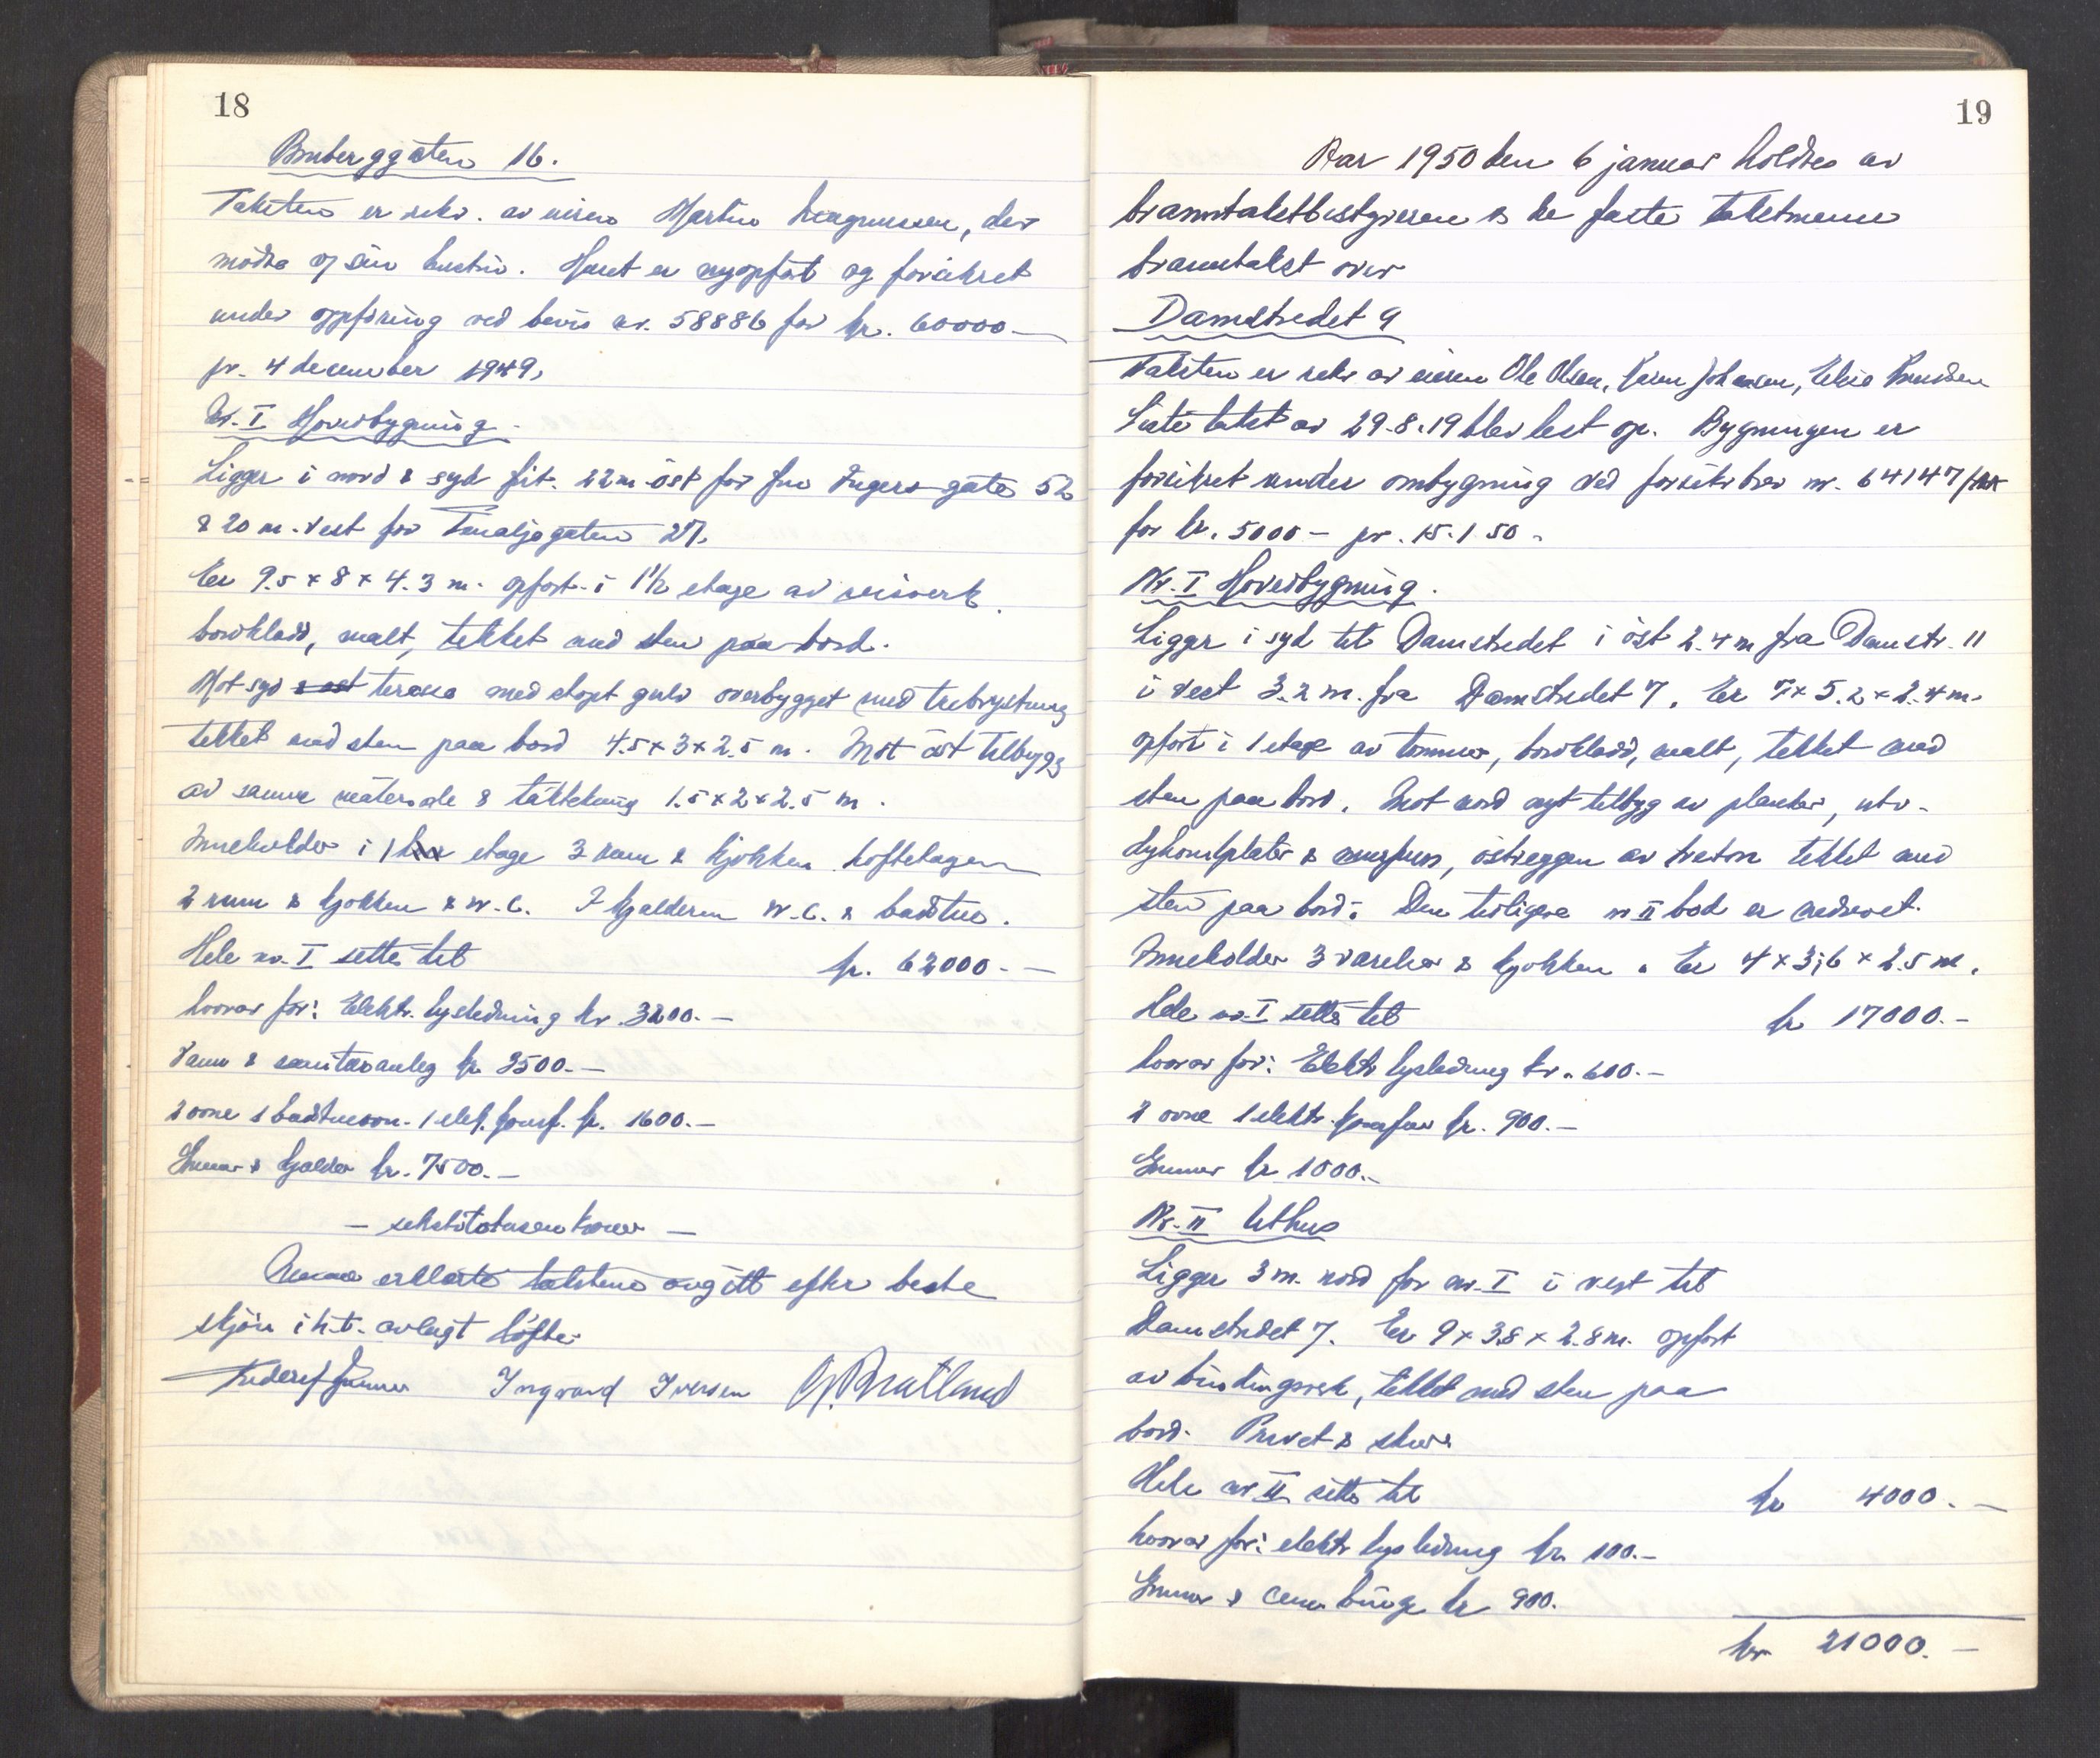 18
Bruberggaten 16.
Taksten er rekv. av eieren Martin Magnussen, der
mödte og sin hustru. Huset er nyopfört og forsikret
under oppföring ved bevis nr. 58886 for kr. 60000 —
pr. 4 december 1949.
Nr. I Hovedbygning.
Ligger i nord & syd frit. 22 m öst for fru Ingers gate 52
& 20 m. vest for Tenaljegaten 27.
Er 9.5 x 8 x 4.3 m. opfört i 1½ etage av reisverk
bordkledd, malt, tekket med sten paa bord.
Mot syd & öst terasse med stöpt gulv overbygget med trebrystning
tekket med sten paa bord 4.5 x 3 x 2.5 m. Mot öst tilbygg
av samme materiale & tækkning 1.5 x 2 x 2.5 m.
Inneholder i 1 etage 3 rum & kjökken loftetagen
2 rum & kjökken & W.C. I kjælderen W.C. & badstue.
Hele nr. I settes til kr. 62000.—
hvorav for: Elektr. lysledning kr. 3200.—
Vann & sanitæranleg kr. 3500.—
2 ovne 1 badstueovn. 1 elek. komf. kr. 1600.—
Grunnmur & kjælder kr. 7500.—
— sekstitotusen kroner —
erklærte taksten avgitt efter beste
skjön i h.t. avlagt löfte.
Ingvard Iversen G. Bratland
19
Aar 1950 den 6 januar holdtes av
branntakstbestyreren & de faste takstmenn
branntakst over
Damstredet 9
Taksten er rekv av eieren Ole Olsen, Johansen, Knudsen
Siste takst av 29.8.19 blev lest op. Bygningen er
forsikret under ombygning ved forsikr.brev nr. 64147
for kr. 5000 — pr. 15.1.50.
Nr. I Hovedbygning.
Ligger i syd til Damstredet i öst 2.4 m fra Damstr. 11
i vest 3.2 m. fra Damstredet 7. Er 7 x 5.2 x 2.4 m.
opfört i 1 etage av tömmer, bordkledd, malt, tekket med
sten paa bord. Mot nord nyt tilbygg av planker, utv.
& östveggen av tekket med
sten paa bord. Den tidligere nr II bod er nedrevet.
Inneholder 3 værelser & kjökken. Er 4 x 3,6 x 2.5 m.
Hele nr. I settes til kr 17000.—
hvorav for: Elektr lysledning kr. 600.—
2 ovne 1 elektr. komfur kr. 900.—
Grunnmur kr 1000.—
Nr. II Uthus
Ligger 3 m. nord for nr. I i vest til
Damstredet 7. Er 9 x 3.8 x 2.8 m. opfört
av bindingsverk, tekket med sten paa
bord. Privet & skur.
Hele nr II settes til kr 4000.—
hvorav for: elektr lysledning kr. 100.—
Grunnmur & kr 900.
kr 21000.—